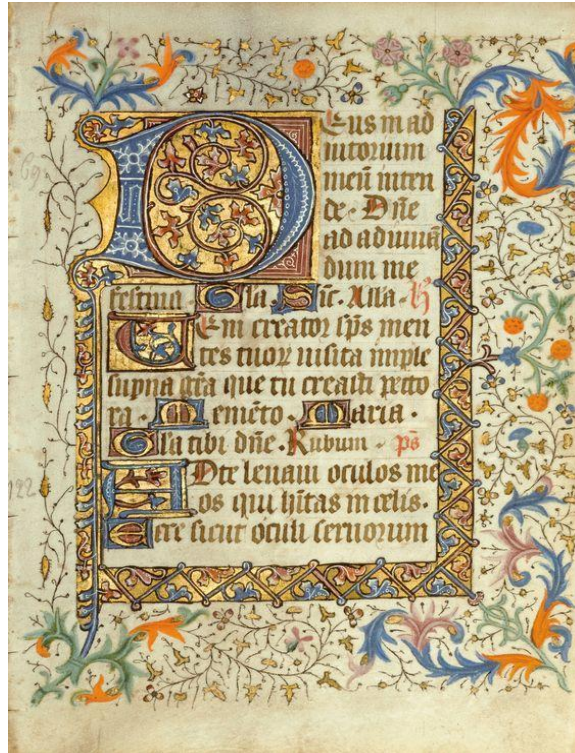 Deus in ad
iutorium
meū inten
de. Dñe
ad adiuuā
dum me
festina. Gla. Sic. Alla. h
Ueni creator sps̄ men
tes tuoꝝ uisita imple
supna grā que tu creasti pecto
ra. Memēto. Maria.
Gla tibi dñe. Rubum. ps
AD te leuaui oculos me
os qui hītas in celis.
Ecce sicut oculi seruorum